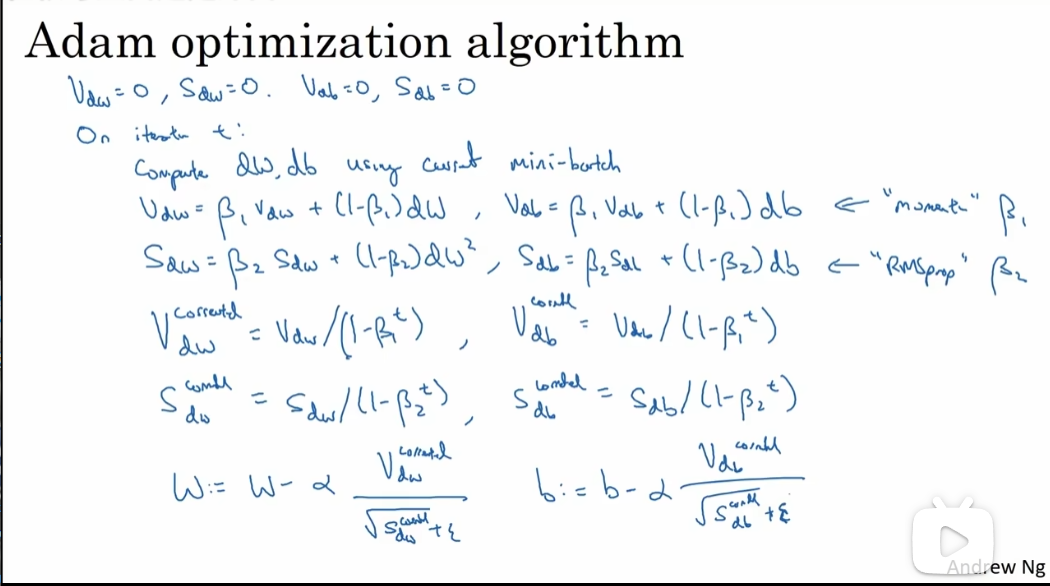 Adam optimization algorithm
V_dw = 0, S_dw = 0. V_db = 0, S_db = 0
On iteratn t:
Compute dW, db using current mini-batch
V_dw = β₁ V_dw + (1-β₁) dW, V_db = β₁ V_db + (1-β₁) db ← "moment" β₁
S_dw = β₂ S_dw + (1-β₂) dW², S_db = β₂ S_db + (1-β₂) db ← "RMSprop" β₂
V_dw^corrected = V_dw/(1-β₁^t), V_db^corrected = V_db/(1-β₁^t)
S_dw^corrected = S_dw/(1-β₂^t), S_db^corrected = S_db/(1-β₂^t)
W := W - α V_dw^corrected / √S_dw^corrected + ε b := b - α V_db^corrected / √S_db^corrected + ε
Andrew Ng